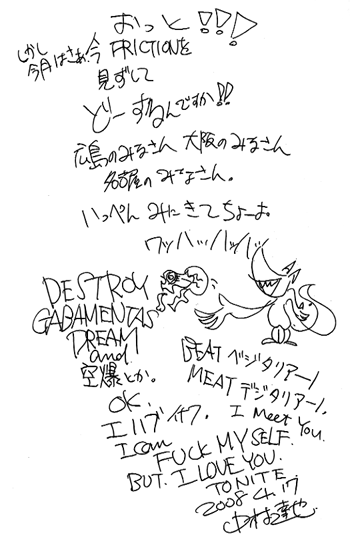 おっと!!!
しかし
今月はさぁ、今 FRICTIONを
見ずして
どーするんですか!!
広島のみなさん 大阪のみなさん
名古屋のみなさん。
いっぺん みにきてちょーよ。
ワッハッハッハッ
DESTROY
GADAMENTAS
DREAM
and
空爆とか。
BEAT ベジタリアーノ
MEAT デジタリアーノ.
OK.
エハブイナフ. I Meet You.
I can
FUCK MY SELF.
BUT. I LOVE YOU.
TONITE.
2008 4. 17
中村達也